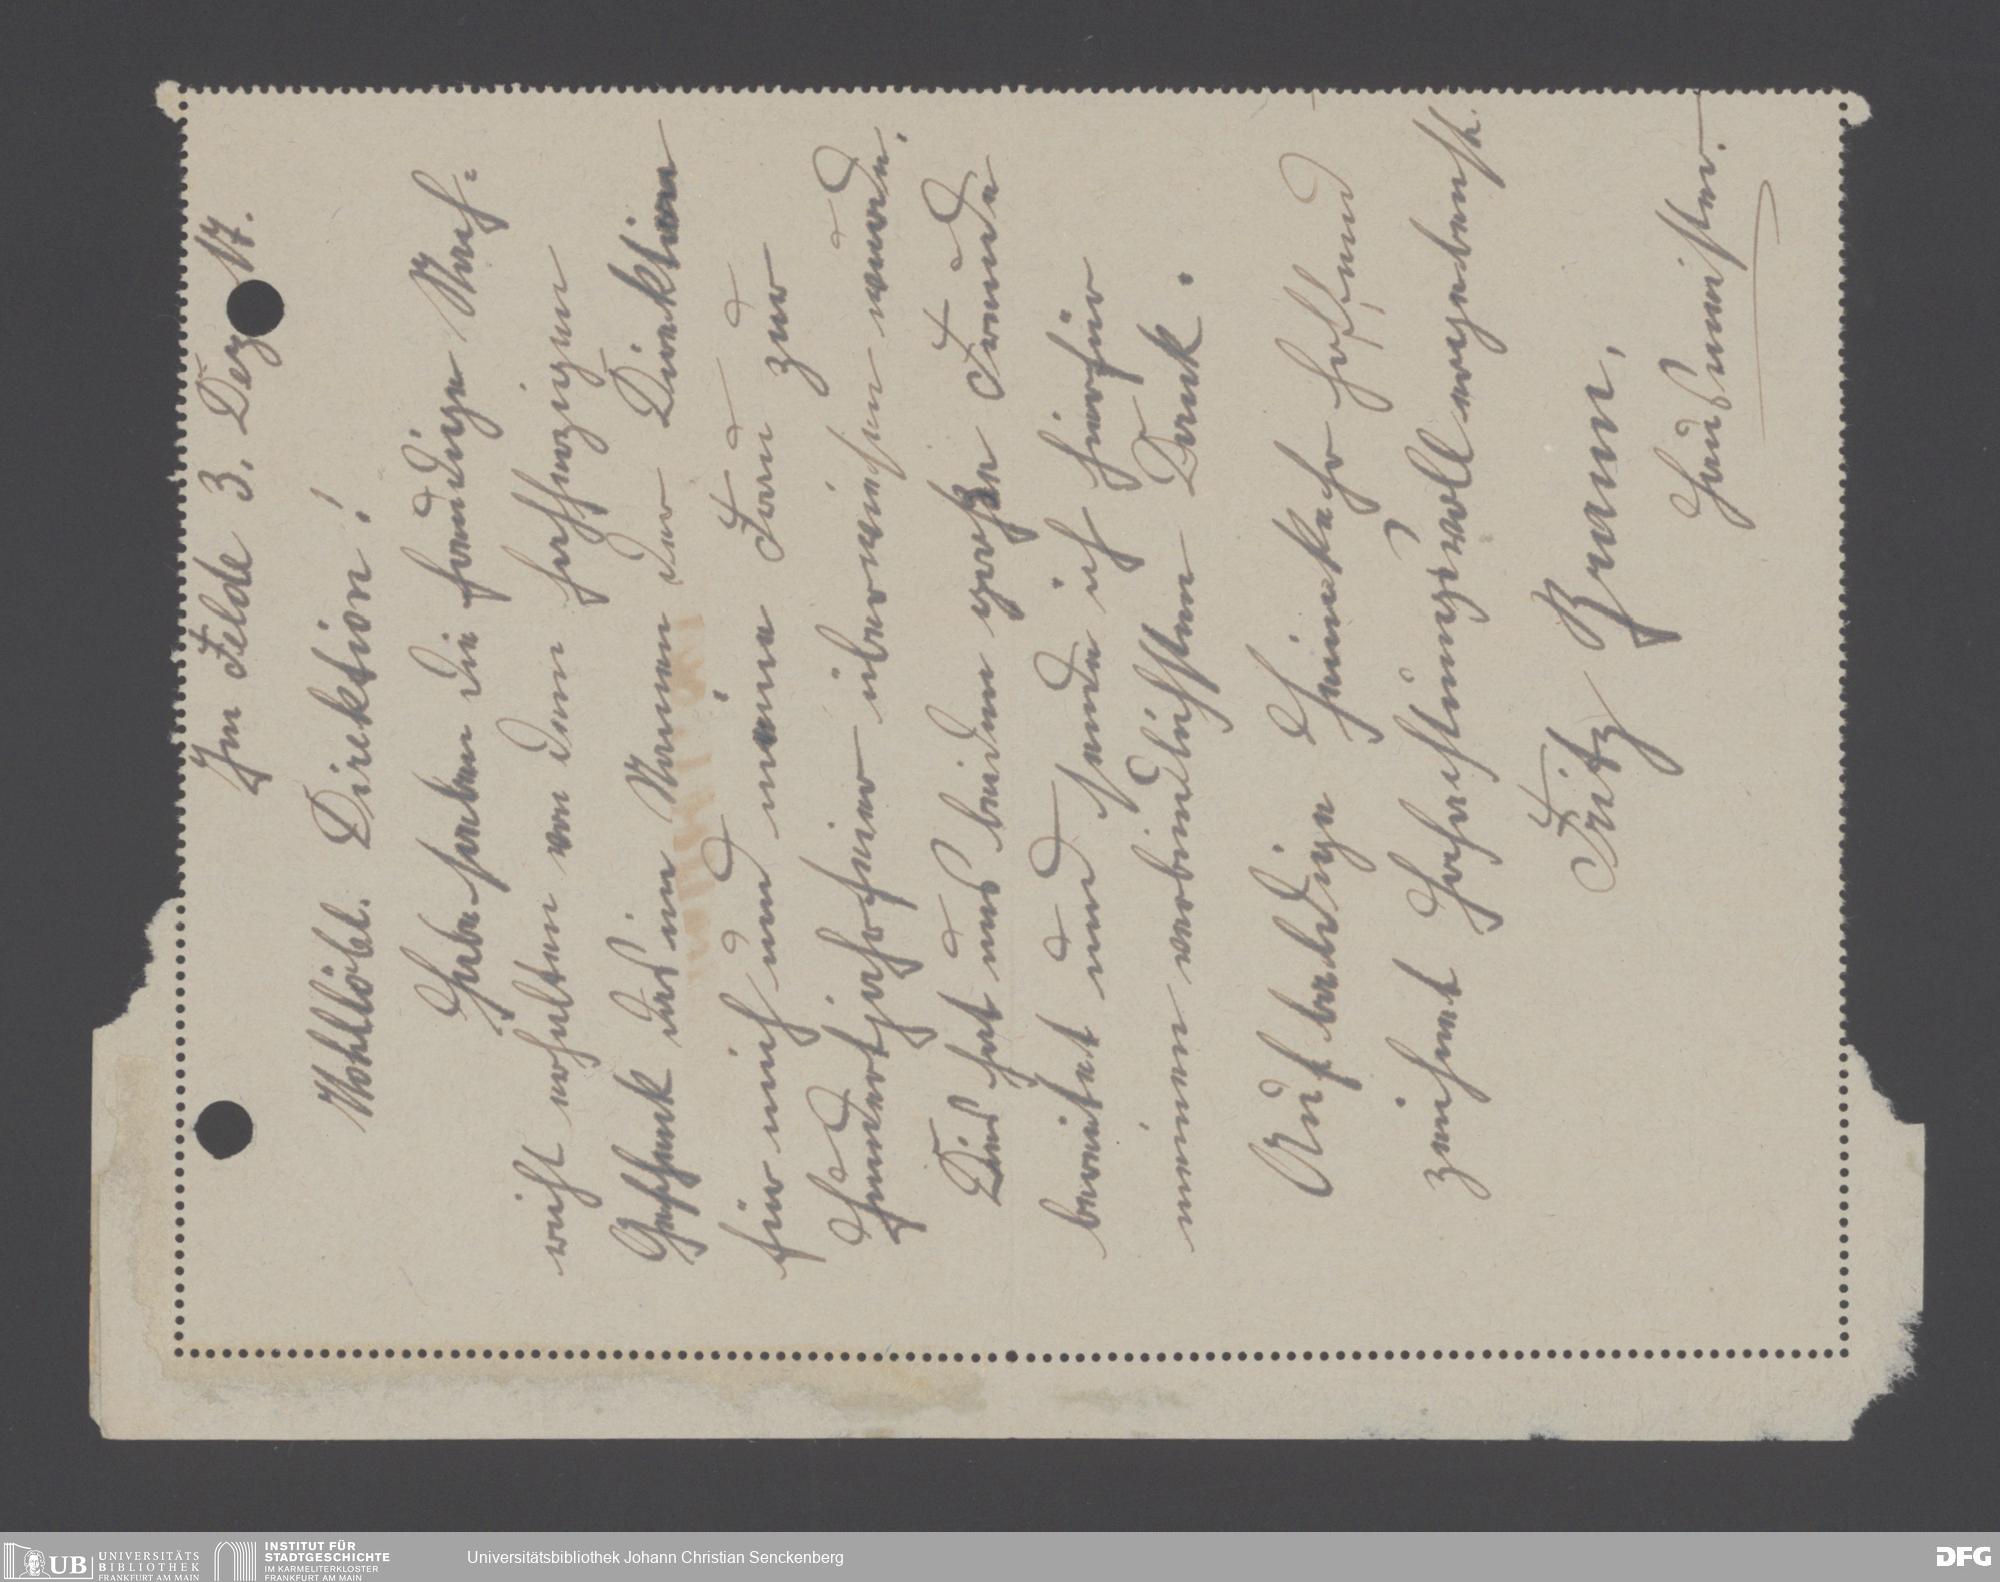 Im Felde 3. Dez 17.
Wohllöbl. Direktion!
Habe soeben die freudige Nach=
richt erhalten von dem hochherzigen
Geschenk das im Namen der Direktion
für mich und meine Frau zur
Hundertjahrfeier überwiesen wurde.
Dies hat uns beiden große Freude
bereitet und sende ich hierfür
meinen verbindlichsten Dank.
Auf baldige Heimkehr hoffend
zeichnet Hochachtungsvoll ergebenst.
Fritz Bramm,
Hausmeister.
UB UNIVERSITÄTS
BIBLIOTHEK
FRANKFURT AM MAIN
INSTITUT FÜR
STADTGESCHICHTE
IM KARMELITERKLOSTER
FRANKFURT AM MAIN
Universitätsbibliothek Johann Christian Senckenberg
DFG